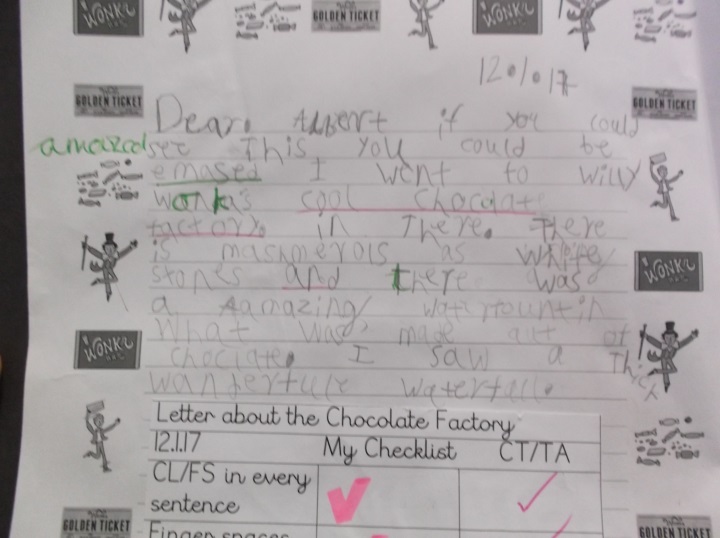 WONKA GOLDEN TICKET WONKA
12.1.17
GOLDEN TICKET GOLDEN TICKET
Dear. Albert if you could
amazed see This you could be
emased I went to willy
wonka's cool chocolate
factory. in There. There
is mashmerols as white
WONKA
stones and there was
a aamazing waterfountin
What was made out of
WONKA
choclate. I saw a Thick
wanderfull waterfall.
Letter about the Chocolate Factory
12.1.17 My Checklist CT/TA
CL/FS in every
sentence
GOLDEN TICKET GOLDEN TICKET
Finger spaces